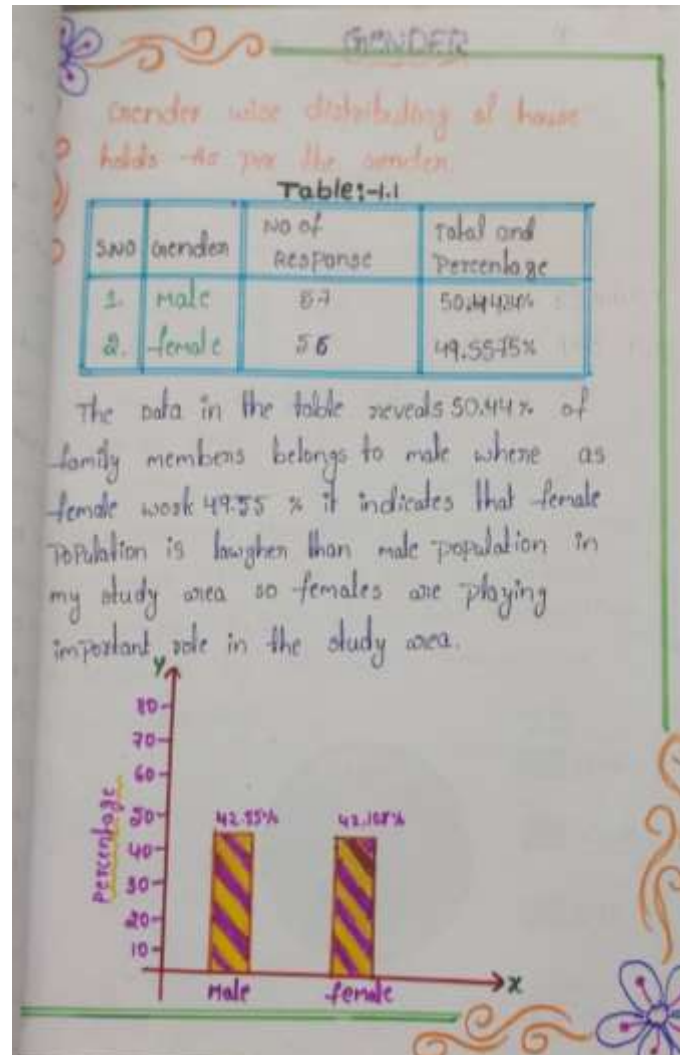 GENDER
Gender wise distributing of house
holds As per the gender
Table:-1.1
S.NO Gender No of Response Total and Percentage
1. Male 57 50.4424%
2. female 56 49.5575%
The Data in the table reveals 50.44% of
family members belongs to male where as
female work 49.55 % it indicates that female
Population is lawgher than male population in
my study area so females are playing
important role in the study area.
Y
80
70
60
50
40
30
20
10
Percentage
42.55%
42.168%
Male
female
X